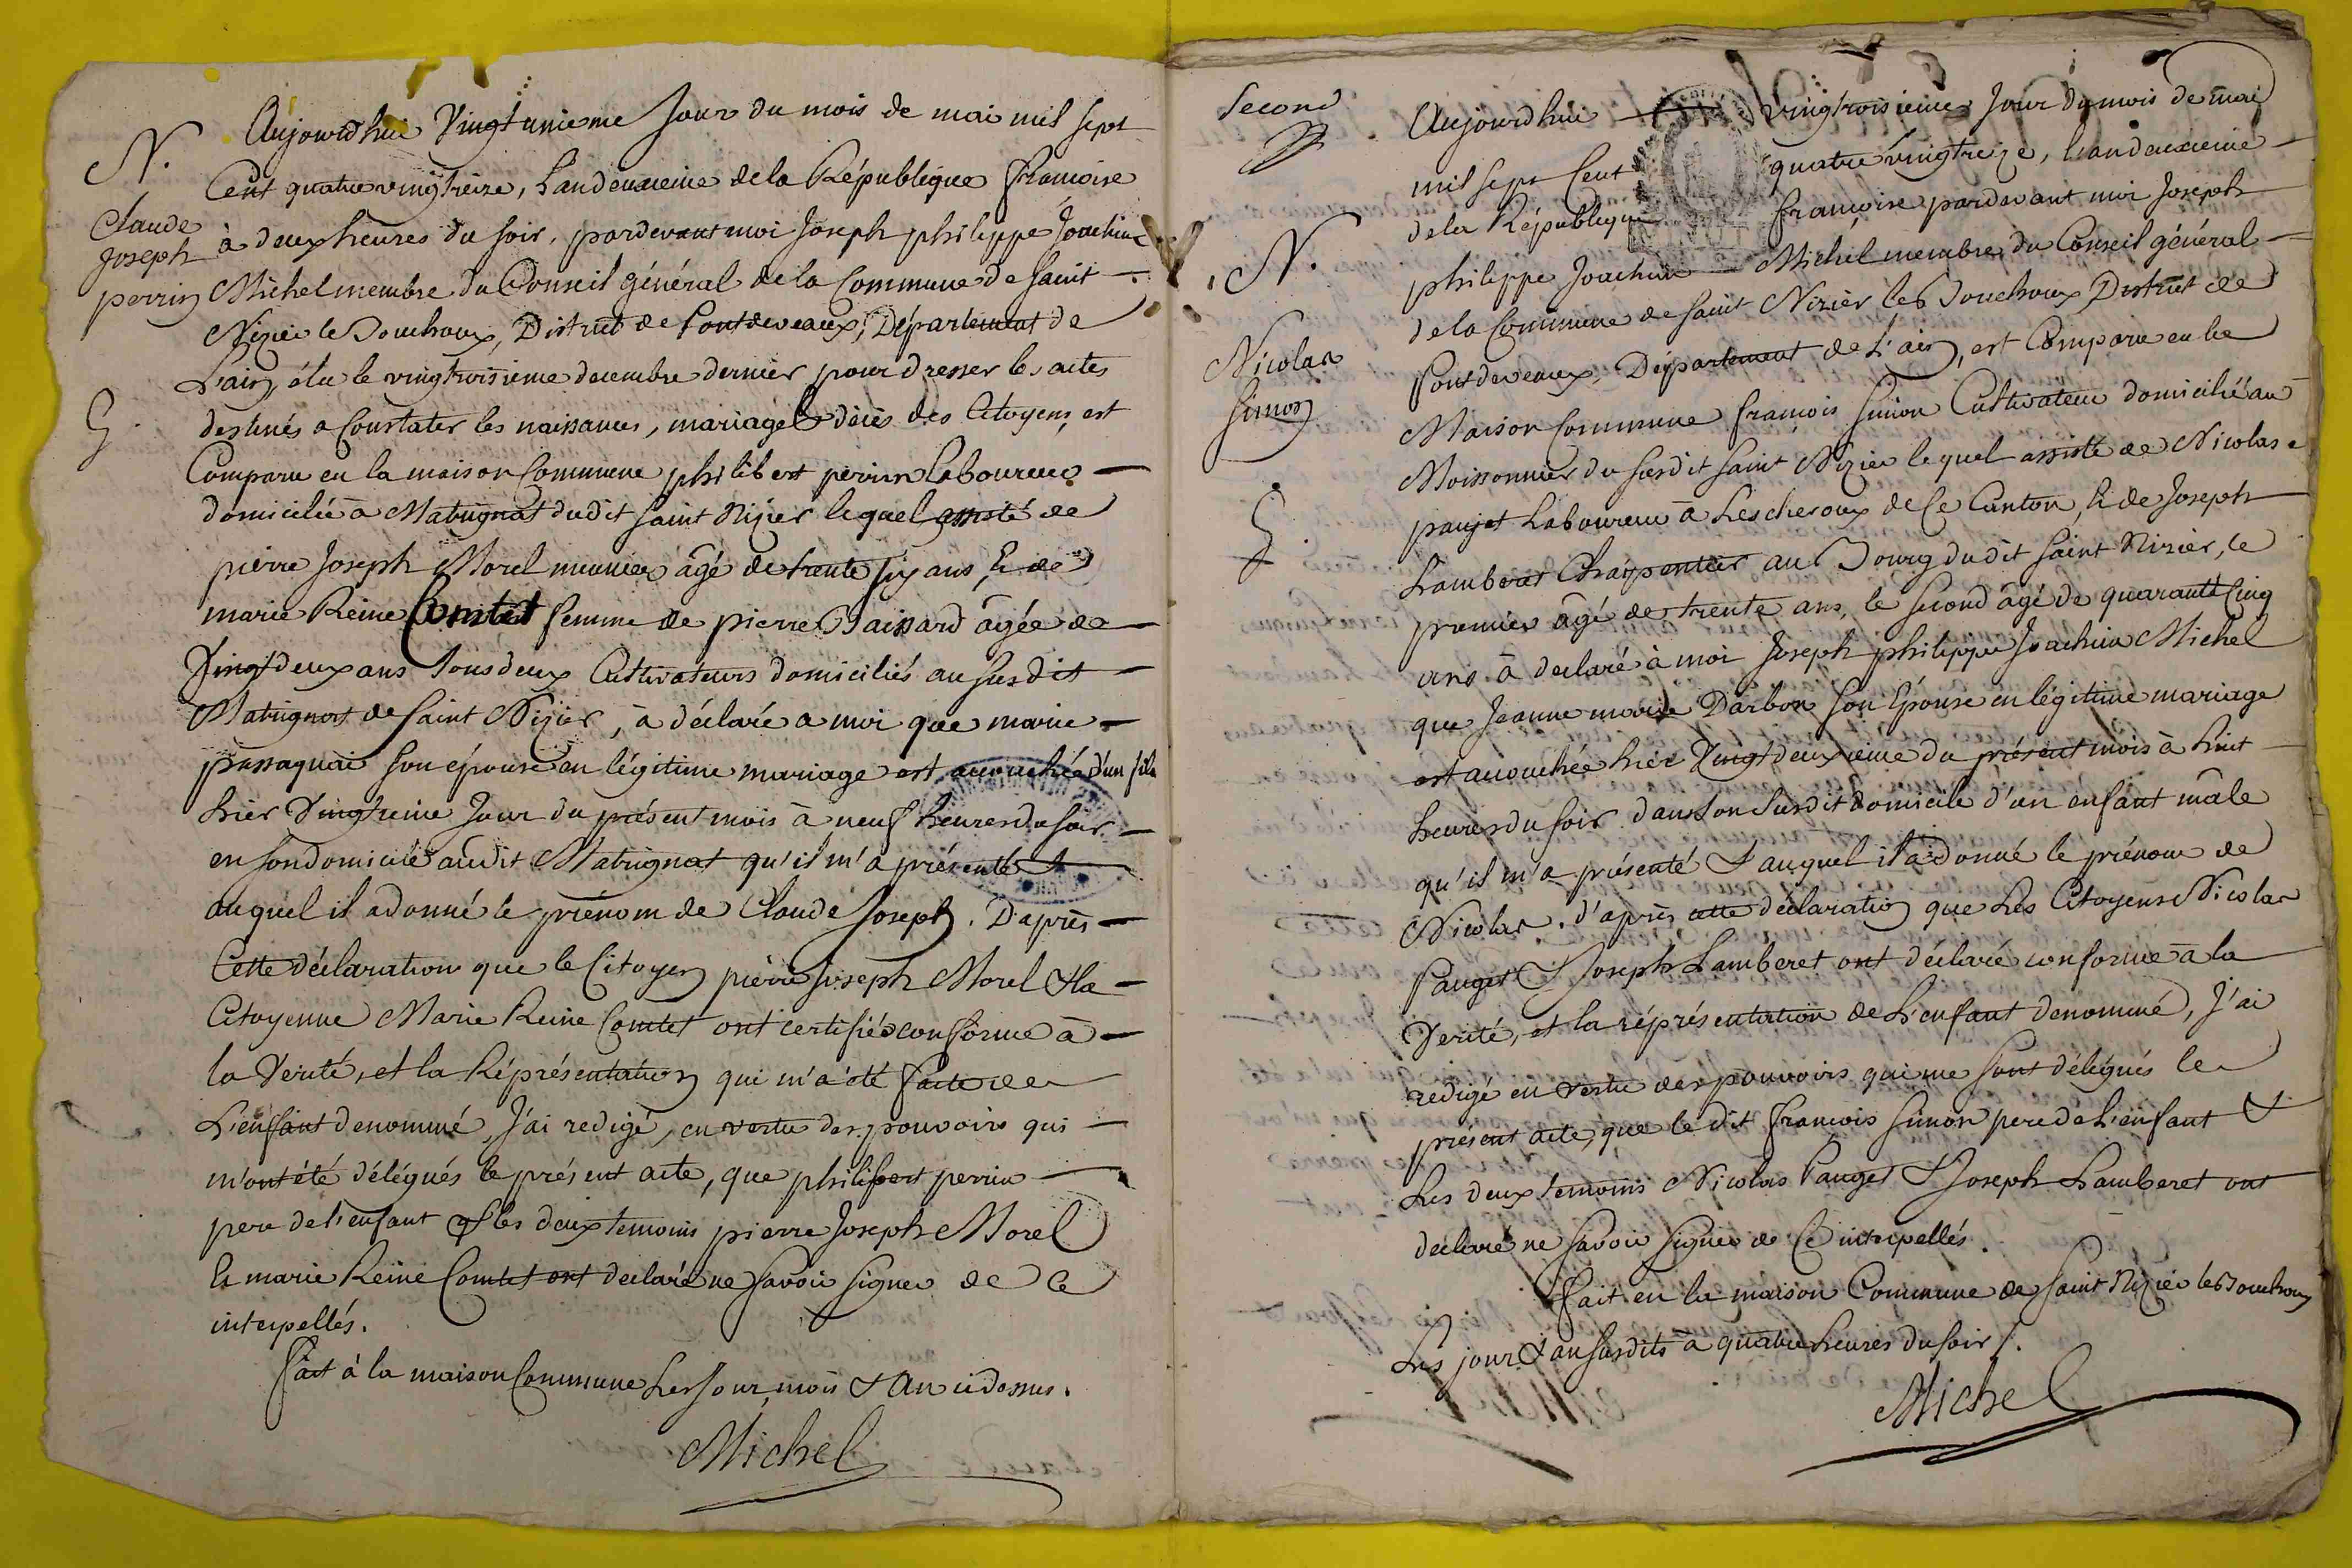 N.
Claude
Joseph
perrin
G.
Aujourd'hui Vingt unieme Jour du mois de mai mil sept
Cent quatre vingt treize, L'an deuxieme de la République francoise
à deux heures du soir, pardevant moi Joseph philippe Joachim
Michel membre du Conseil général de la Commune de saint
Nizier le Bouchoux, District de Pontdeveaux, Département de
L'ain, élu le vingt troisieme decembre dernier pour dresser les actes
destinés a constater les naissances, mariage & décès des Citoyens, est
Comparu en la maison Commune philibert perrin Laboureur
domicilié à Matrignat dudit saint Nizier lequel assisté de
pierre Joseph Morel meunier âgé de trente six ans, Et de
marie Reine Comtet femme de pierre Baissard âgée de
Vingt deux ans tous deux Cultivateurs domiciliés au susdit
Matrignat de saint Nizier, à déclaré a moi que marie
passaquai son épouse en légitime mariage est accouchée d'un fils
hier Vingtieme Jour du présent mois à neuf heures du soir
en son domicile audit Matrignat qu'il m'a présenté &
auquel il a donné le prénom de Claude Joseph. D'après
Cette déclaration que le Citoyen pierre Joseph Morel & la
Citoyenne Marie Reine Comtet ont certifiés conforme à
la Verité, et la Réprésentation qui m'a été faite de
L'enfant denommé, J'ai redigé, en vertu des pouvoirs qui
m'ont été délégués le présent acte, que philibert perrin
pere de l'enfant & les deux temoins pierre Joseph Morel
Et marie Reine Comtet ont declaré ne savoir signer de ce
interpellés.
fait à la maison Commune Les Jour, mois & an ci dessus.
Michel
Second
N.
Nicolas
Simon
G.
Aujourd'hui vingt troisieme Jour du mois de mai
mil sept Cent quatre vingt treize, L'an deuxieme
de la République francoise pardevant moi Joseph
philippe Joachim Michel membre du Conseil général
de la Commune de saint Nizier le Bouchoux District de
Pontdeveaux, Département de L'ain, est Comparu en la
Maison Commune francois Simon Cultivateur domicilié au
Moissonnier du susdit saint Nizier lequel assisté de Nicolas
pauget Laboureur à Lescheroux de Ce Canton, Et de Joseph
Lamberet Charpentier au Bourg dudit saint Nizier, le
premier âgé de trente ans, le second âgé de quarante Cinq
ans à declaré à moi Joseph philippe Joachim Michel
que Jeanne marie Darbon son Epouse en légitime mariage
est accouchée hier Vingt deuxieme du présent mois à huit
heures du soir dans son susdit domicile d'un enfant mâle
qu'il m'a présenté & auquel il a donné le prénom de
Nicolas. d'après cette déclaration que Les Citoyens Nicolas
Pauget & Joseph Lamberet ont déclaré conforme à la
Verité, et la réprésentation de L'enfant denommé, J'ai
redigé en vertu des pouvoirs qui me sont délégués le
présent acte, que le dit francois simon pere de L'enfant &
Les deux temoins Nicolas Pauget & Joseph Lamberet ont
declaré ne savoir signer de Ce interpellés.
fait en la maison Commune de saint Nizier le Bouchoux
Les jour & an susdits à quatre heures du soir /.
Michel